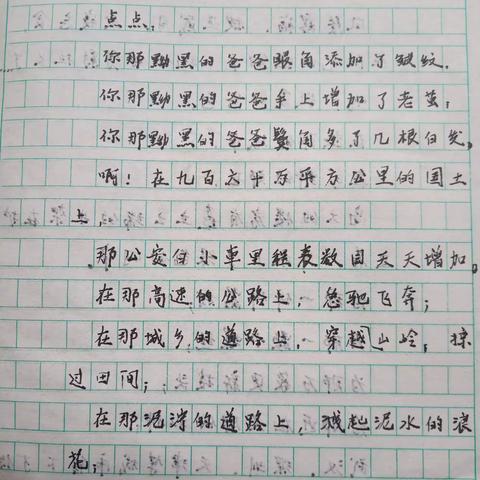 点点,
你那黝黑的爸爸眼角添加了皱纹.
你那黝黑的爸爸手上增加了老茧;
你那黝黑的爸爸鬓角多了几根白发,
啊!在九百六十万平方公里的国土
上
那公安白小車里程表数目天天增加.
在那高速的公路上,急驰飞奔;
在那城乡的道路上,穿越山岭,掠
过田间;
在那泥泞的道路上,溅起泥水的浪
花;